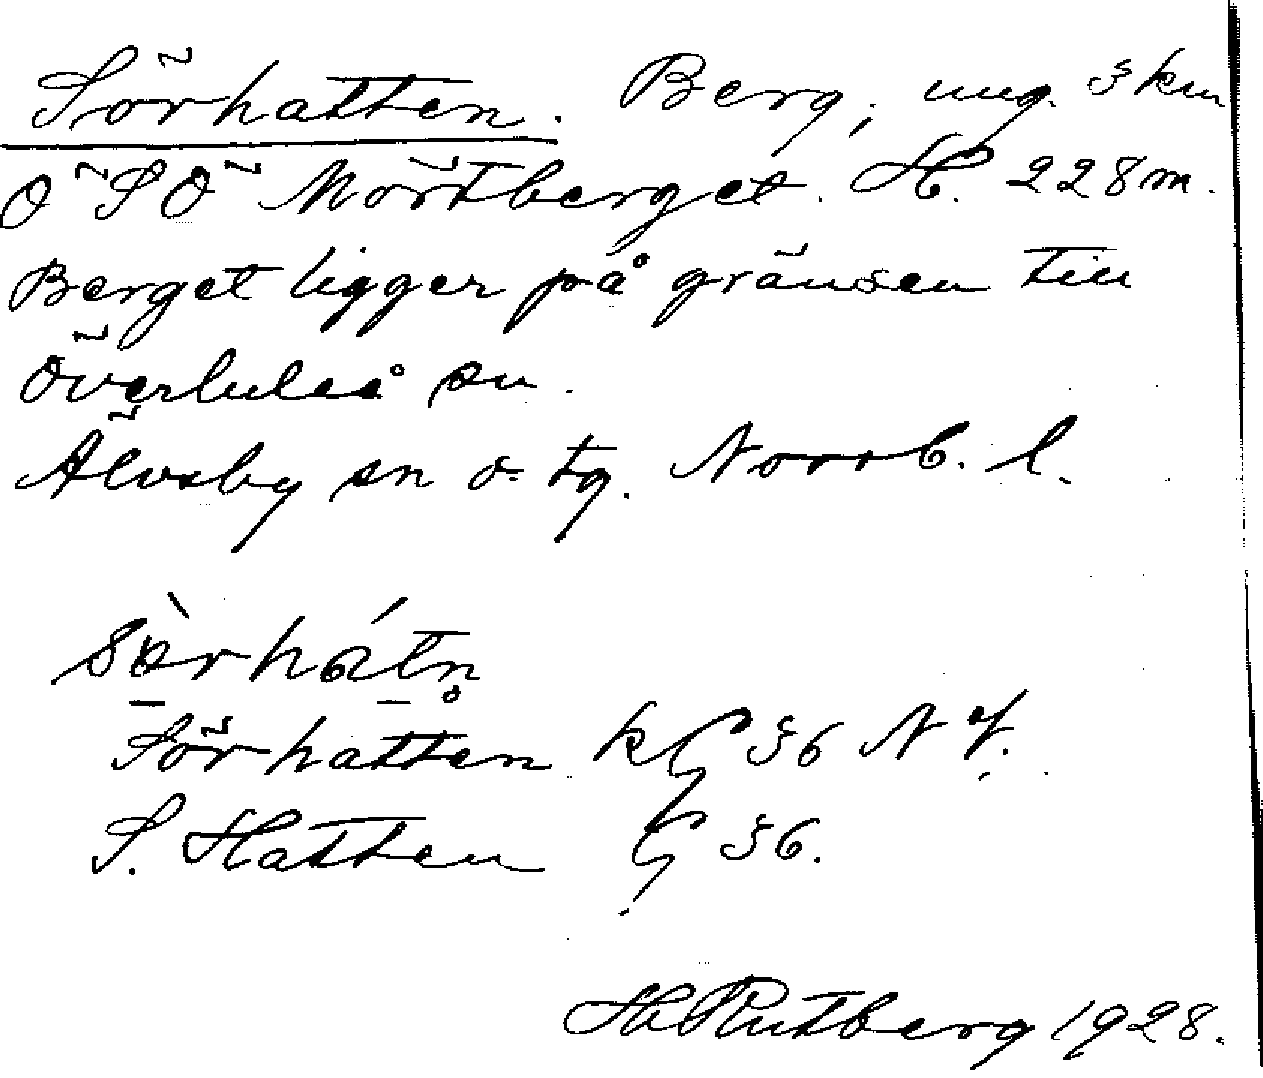 Sörhatten. Berg, ung. 3 km
ÖSÖ Mörtberget. H. 228 m.
Berget ligger på gränsen till
Överluleå sn.
Älvsby sn o. tg. Norrb. l.
Sörhatten kG 36 NV.
S. Hatten G 36.
H Rutberg 1928.